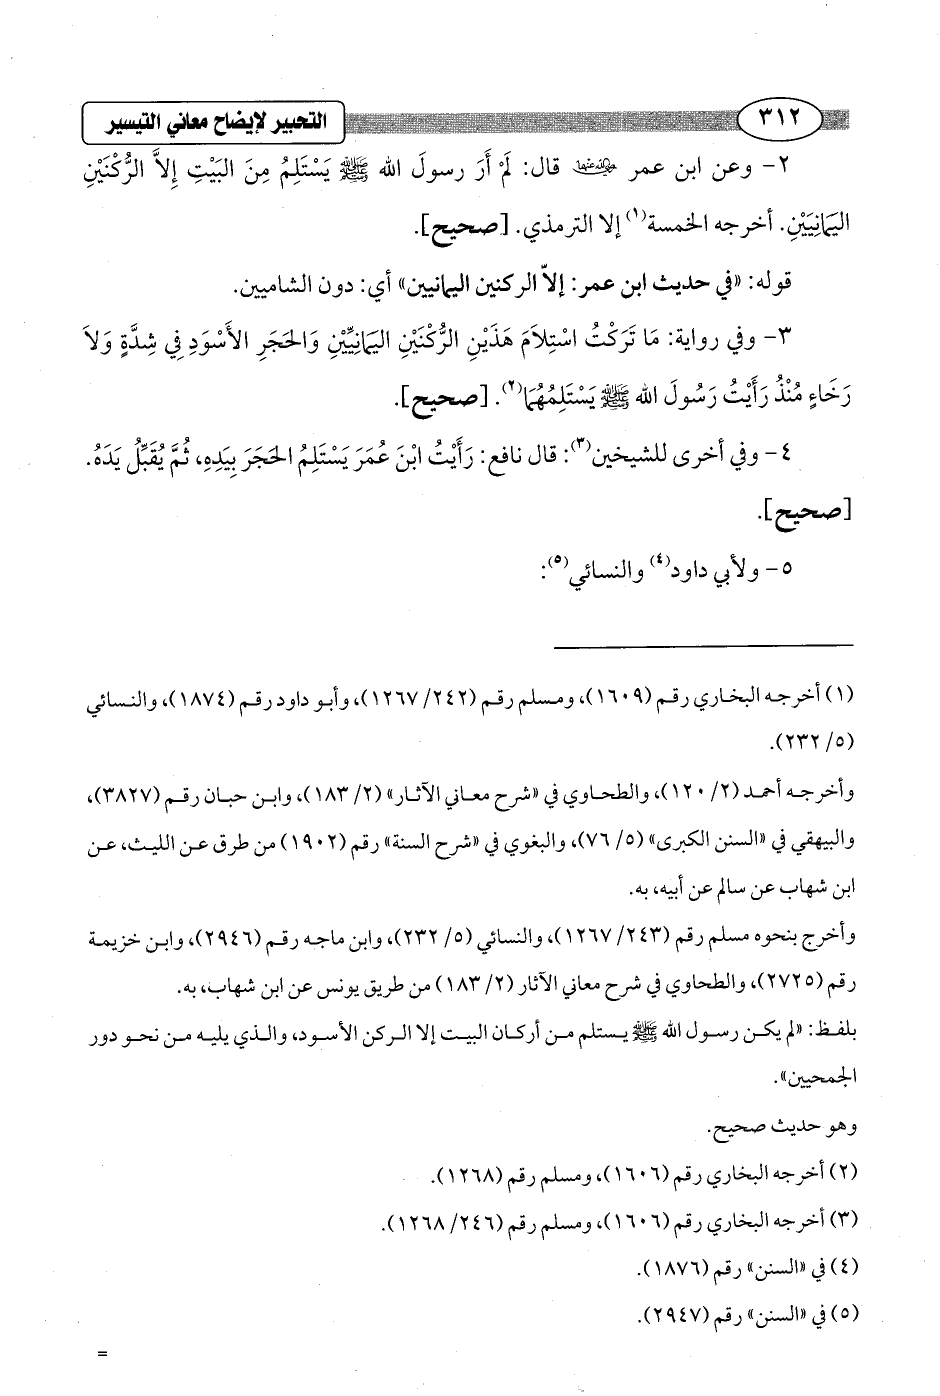 ٣١٢
التحبير لإيضاح معاني التيسير
٢- وعن ابن عمر رضي الله عنهما قال: لَمْ أَرَ رسولَ الله ﷺ يَسْتَلِمُ مِنَ البَيْتِ إِلاَّ الرُّكْنَيْنِ
اليَمَانِيَيْنِ. أخرجه الخمسة(١) إلا الترمذي. [صحيح].
قوله: «في حديث ابن عمر: إلاّ الركنين اليمانيين» أي: دون الشاميين.
٣- وفي رواية: مَا تَرَكْتُ اسْتِلاَمَ هَذَيْنِ الرُّكْنَيْنِ اليَمانِيَّيْنِ وَالحَجَرِ الأَسْوَدِ فِي شِدَّةٍ وَلاَ
رَخَاءٍ مُنْذُ رَأَيْتُ رَسُولَ الله ﷺ يَسْتَلِمُهُمَا(٢). [صحيح].
٤- وفي أخرى للشيخين(٣): قال نافع: رَأَيْتُ ابْنَ عُمَرَ يَسْتَلِمُ الحَجَرَ بِيَدِهِ، ثُمَّ يُقَبِّلُ يَدَهُ.
[صحيح].
٥- ولأبي داود(٤) والنسائي(٥):
(١) أخرجه البخاري رقم (١٦٠٩)، ومسلم رقم (٢٤٢/ ١٢٦٧)، وأبو داود رقم (١٨٧٤)، والنسائي
(٥/ ٢٣٢).
وأخرجه أحمد (٢/ ١٢٠)، والطحاوي في «شرح معاني الآثار» (٢/ ١٨٣)، وابن حبان رقم (٣٨٢٧)،
والبيهقي في «السنن الكبرى» (٥/ ٧٦)، والبغوي في «شرح السنة» رقم (١٩٠٢) من طرق عن الليث، عن
ابن شهاب عن سالم عن أبيه، به.
وأخرج بنحوه مسلم رقم (٢٤٣/ ١٢٦٧)، والنسائي (٥/ ٢٣٢)، وابن ماجه رقم (٢٩٤٦)، وابن خزيمة
رقم (٢٧٢٥)، والطحاوي في شرح معاني الآثار (٢/ ١٨٣) من طريق يونس عن ابن شهاب، به.
بلفظ: «لم يكن رسول الله ﷺ يستلم من أركان البيت إلا الركن الأسود، والذي يليه من نحو دور
الجمحيين».
وهو حديث صحيح.
(٢) أخرجه البخاري رقم (١٦٠٦)، ومسلم رقم (١٢٦٨).
(٣) أخرجه البخاري رقم (١٦٠٦)، ومسلم رقم (٢٤٦/ ١٢٦٨).
(٤) في «السنن» رقم (١٨٧٦).
(٥) في «السنن» رقم (٢٩٤٧).
=